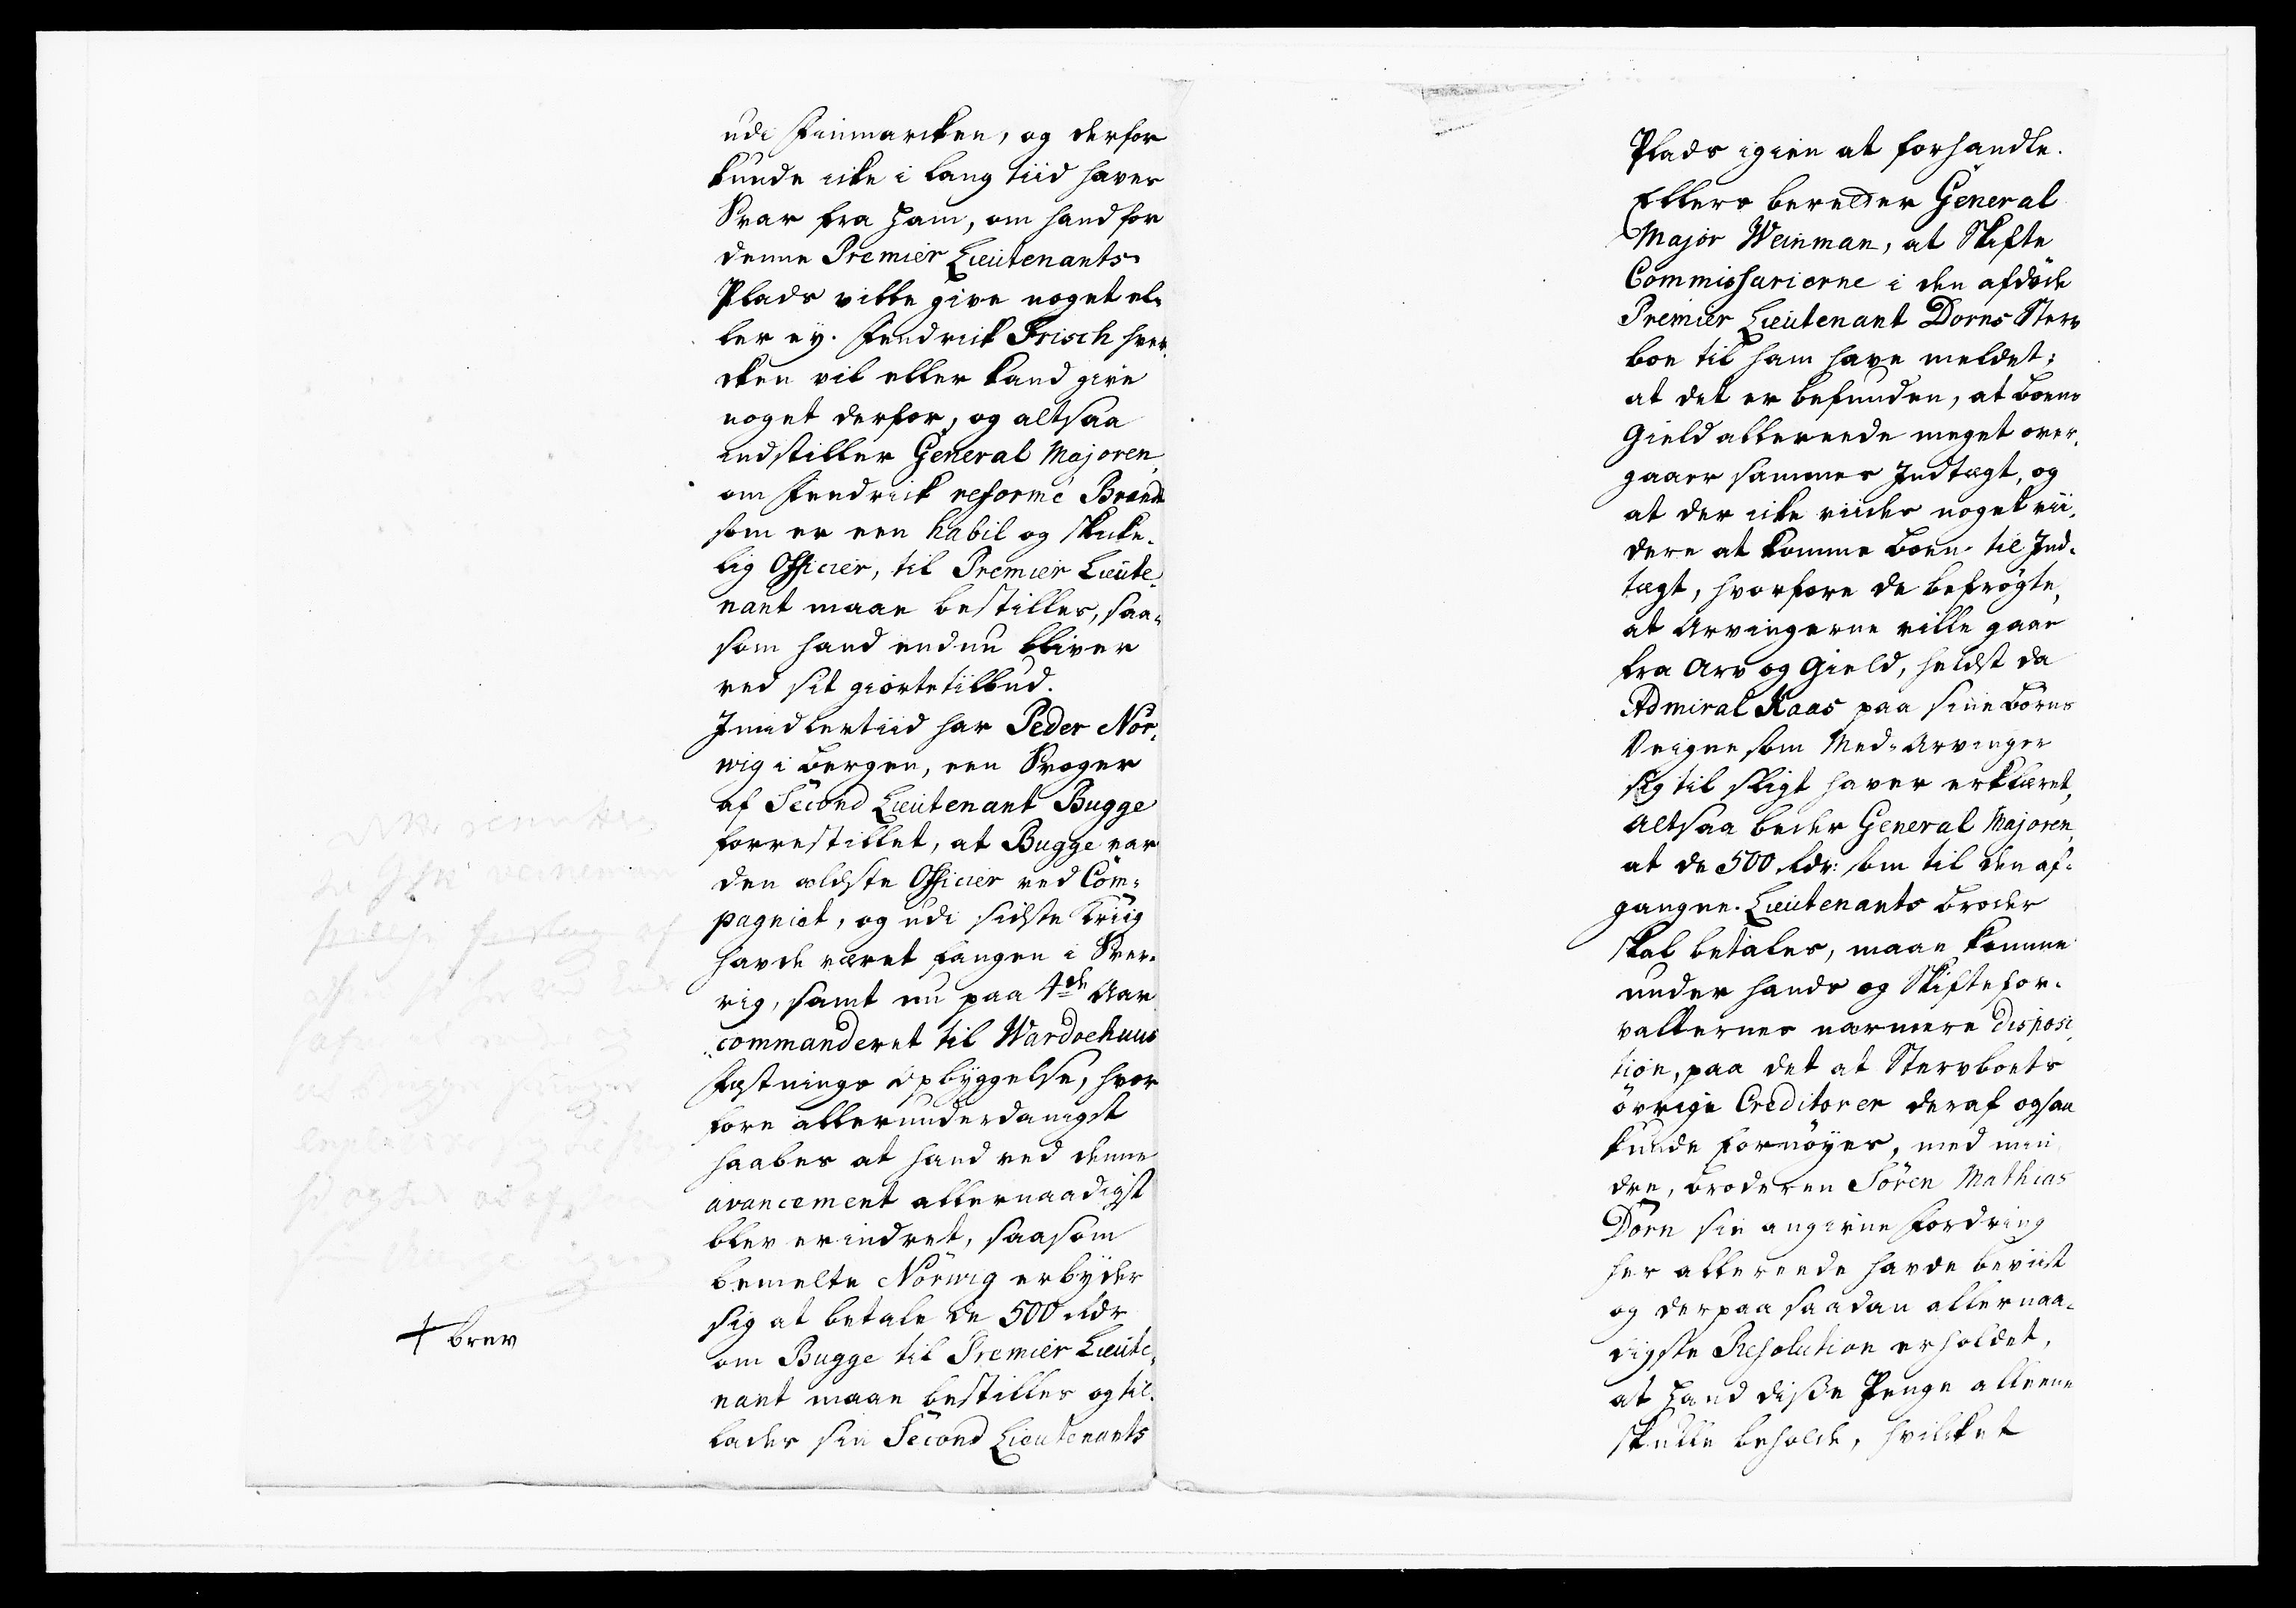 udi Finmarcken, og derfor
kunde icke i lang tiid haves
Svar fra Ham, om hand for
denne Premier Lieutenants
Plads ville give noget el-
ler ey. Fendrick Frisch hver-
cken vil eller kand give
noget derfor, og altsaa
indstiller General Majoren,
om Fendrick reformé Brandt
som er een habil og skicke-
lig Officier, til Premier Lieute-
nant maae bestilles, saa-
som hand endnu bliver
ved sit giorte tilbud.
Imidlertiid har Peder Nör-
wig i Bergen, een Svoger
af Second Lieutenant Bugge
forrestillet, at Bugge var
den ældste Officier ved Com-
pagniet, og udi sidste Kriig
havde været fangen i Sver-
rig, samt nu paa 4de Aar
commanderet til Wardoehuus
Fæstnings Opbyggelse, hvor
fore allerunderdanigst
haabes at hand ved denne
avancement allernaadigst
blev erindret, saasom
bemelte Nörwig erbyder
sig at betale de 500 Rdr
om Bugge til Premier Lieute-
nant maae bestilles og til-
lades sin Second Lieutenants
+ brev
Plads igien at forhandle.
Ellers beretter General
Major Weinman, at Skifte
Commissarierne i den afdöde
Premier Lieutenant Dorns Sterv
boe til ham have meldet:
at det er befunden, at Boens
Gield allereede meget over-
gaaer sammes Indtægt, og
at der icke viides noget vii-
dere at komme Boen til Ind-
tægt, hvorfore de befrögte,
at Arvingerne ville gaae
fra Arv og Gield, heldst da
Admiral Kaas paa sine Börns
Veigne som Med-Arvinger
sig til sligt haver erklæret,
Altsaa beder General Majoren,
at de 500 Rdr: som til den af-
gangne Lieutenants Broder
skal betales, maae komme
under hands og Skiftefor-
valternes nærmere disposi-
tion, paa det at Stervboets
övrige Creditorer deraf ogsaa
kunde fornöyes, med min-
dre, Broderen Sören Mathias
Dorn sin angivne Fordring
her allereede havde beviist
og derpaa saadan allernaa-
digste Resolution erholdet,
at Hand disse Penge alleene
skulle beholde, hvilcket